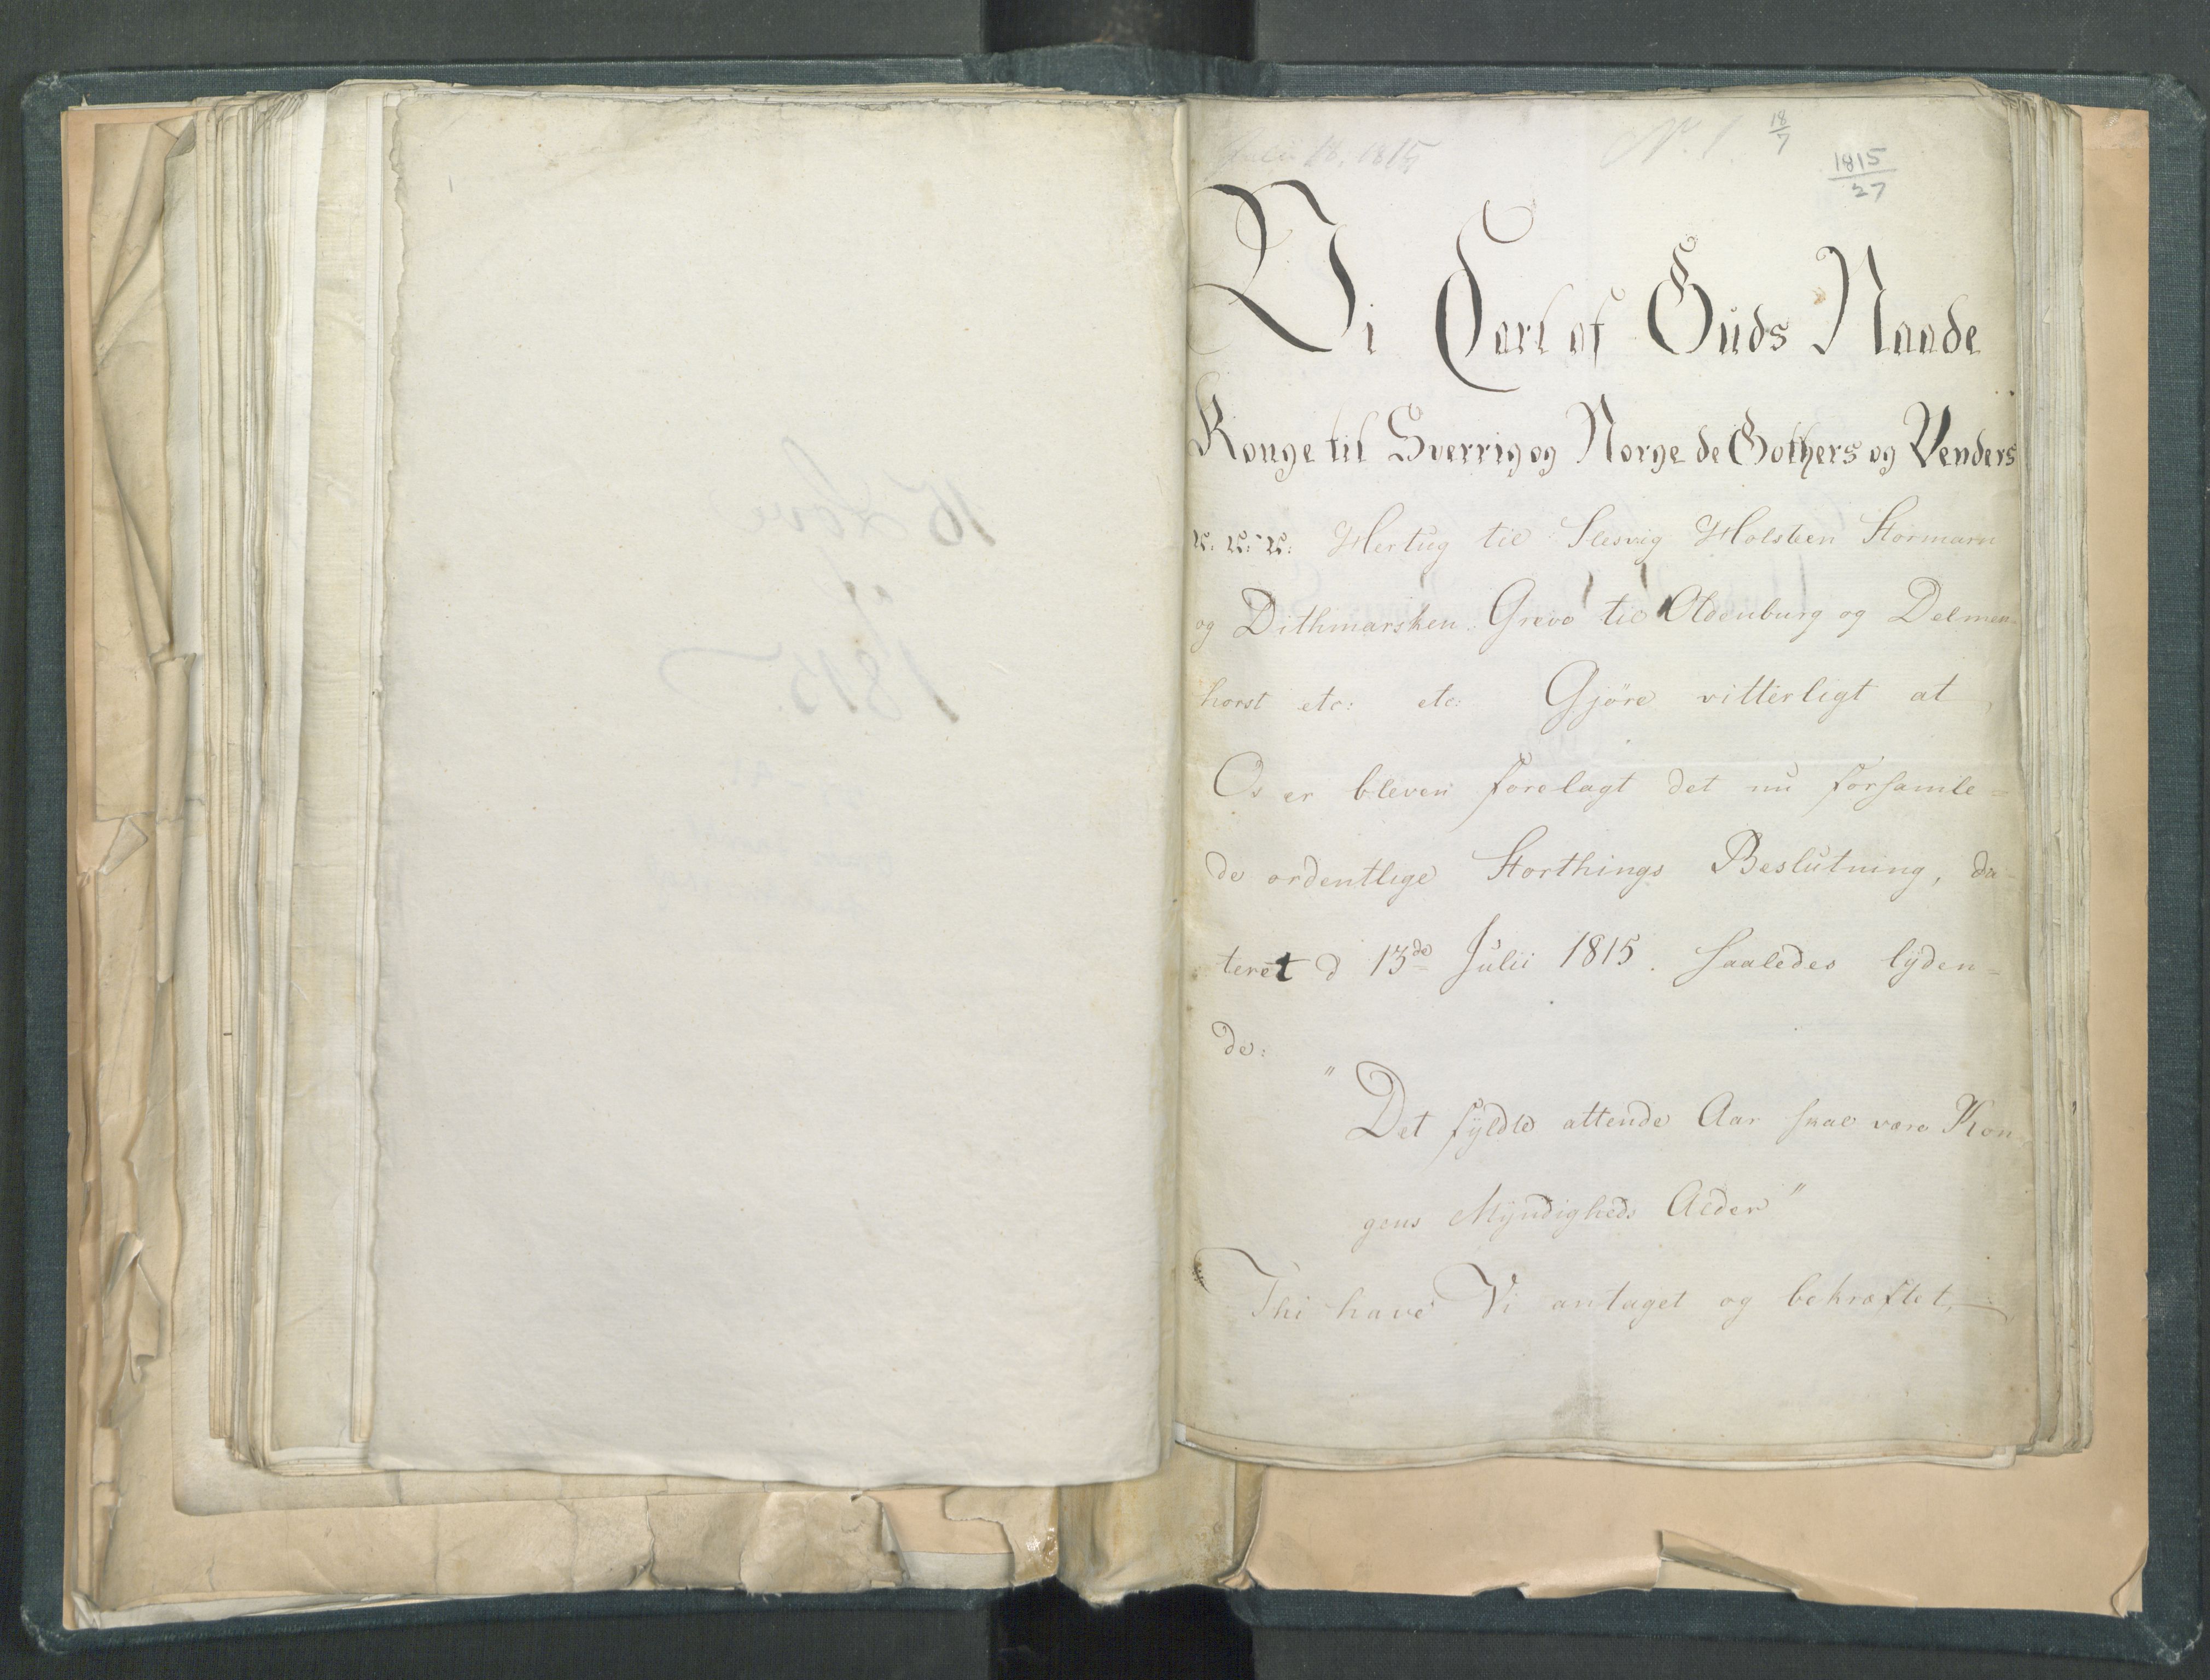 Julii 18. 1815
N. 1
18/7
1815/27
Vi Carl af Guds Naade
Konge til Sverrig og Norge de Gothers og Venders
&: &: &: Hertug til Slesvig Holsten Stormarn
og Dithmarsken Greve til Oldenburg og Delmen-
horst etc: etc: Gjöre vitterligt at,
Os er bleven forelagt det nu forsamle=
de ordentlige Storthings Beslutning, da-
teret d 13de Julii 1815. saaledes lyden=
de:
"Det fyldte attende Aar skal være Kon-
gens Myndigheds Alder"
Thi have Vi antaget og bekræftet,
16 Love
af
1815